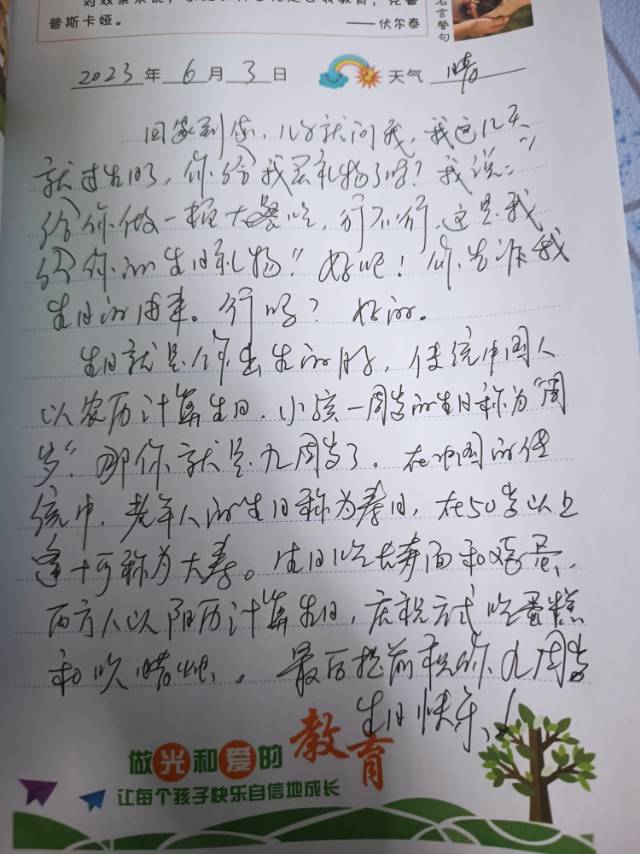 普斯卡娅。 ——伏尔泰
名言警句
2023年6月3日 天气 晴
回家到家，儿子就问我，我这几天
就过生日了，你给我买礼物了吗？我说："
给你做一桌大餐吃，行不行，这是我
给你的生日礼物"好吧！你告诉我
生日的由来。行吗？好的。
生日就是你出生的时，传统中国人
以农历计算生日，小孩一周岁的生日称为"周
岁"那你就是九周岁了。在中国的传
统中，老年人的生日称为寿日，在50岁以上
逢十可称为大寿。生日吃长寿面和鸡蛋，
西方人以阳历计算生日，庆祝方式吃蛋糕
和吹蜡烛。最后提前祝你九周岁
生日快乐！
做光和爱的教育
让每个孩子快乐自信地成长